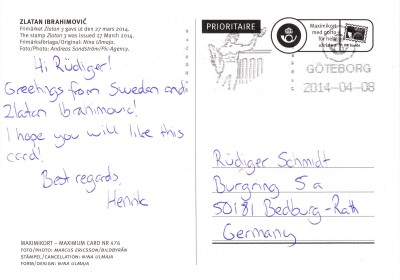 ZLATAN IBRAHIMOVIĆ
Frimärket Zlatan 3 gavs ut den 27 mars 2014.
The stamp Zlatan 3 was issued 27 March 2014.
Frimärksförlaga/Original: Nina Ulmaja.
Foto/Photo: Andreas Sandström/Pic-Agency.
Hi Rüdiger!
Greetings from Sweden and
Zlatan Ibrahimovic!
I hope you will like this
card!
Best regards,
Henrik
MAXIMIKORT – MAXIMUM CARD NR 476
FOTO/PHOTO: MARCUS ERICSSON/BILDBYRÅN
STÄMPEL/CANCELLATION: NINA ULMAJA
FORM/DESIGN: NINA ULMAJA
PRIORITAIRE
Maximikort
med porto
för hela
världen
GÖTEBORG
2014-04-08
Rüdiger Schmidt
Burgring 5a
50181 Bedburg-Rath
Germany